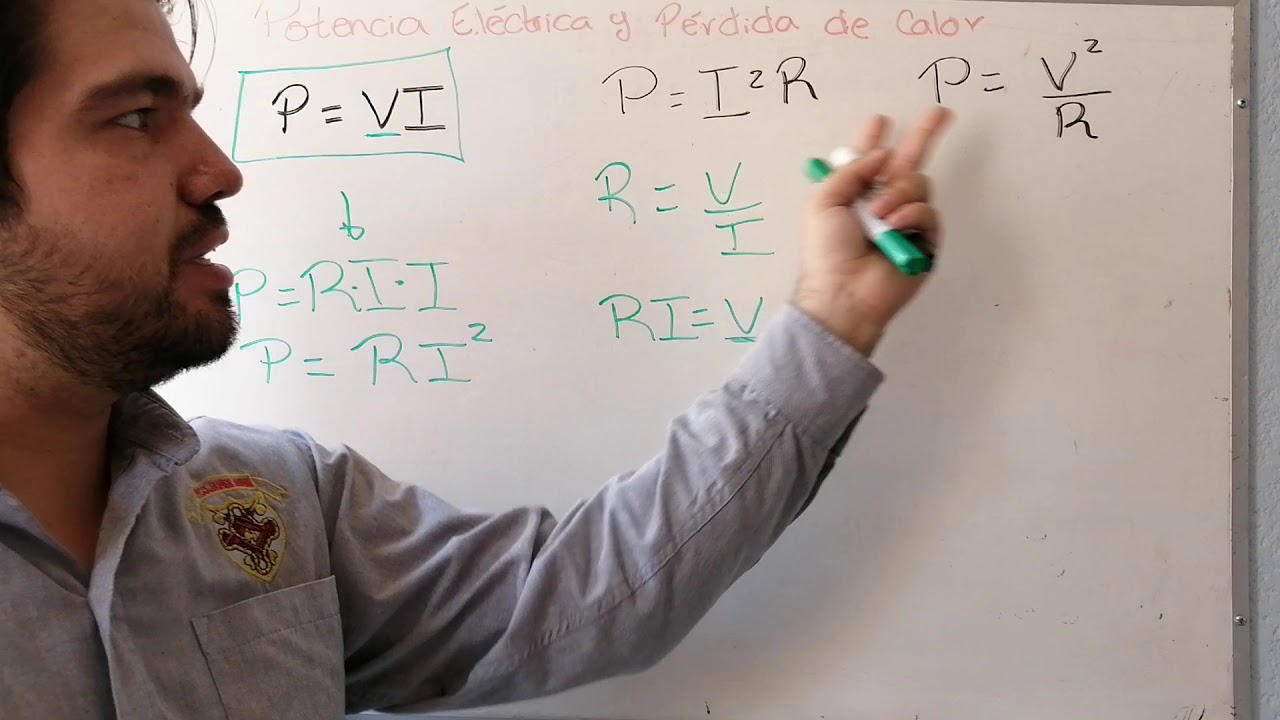 Potencia Eléctrica y Pérdida de Calor
P = VI
P = I²R
P = V²/R
R = V/I
P = R·I·I
RI = V
P = RI²